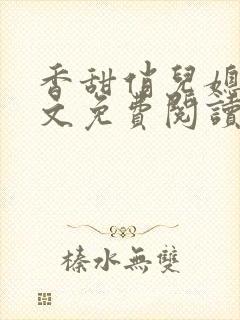 香甜俏兒媳
文免費閱讀
榛水無雙